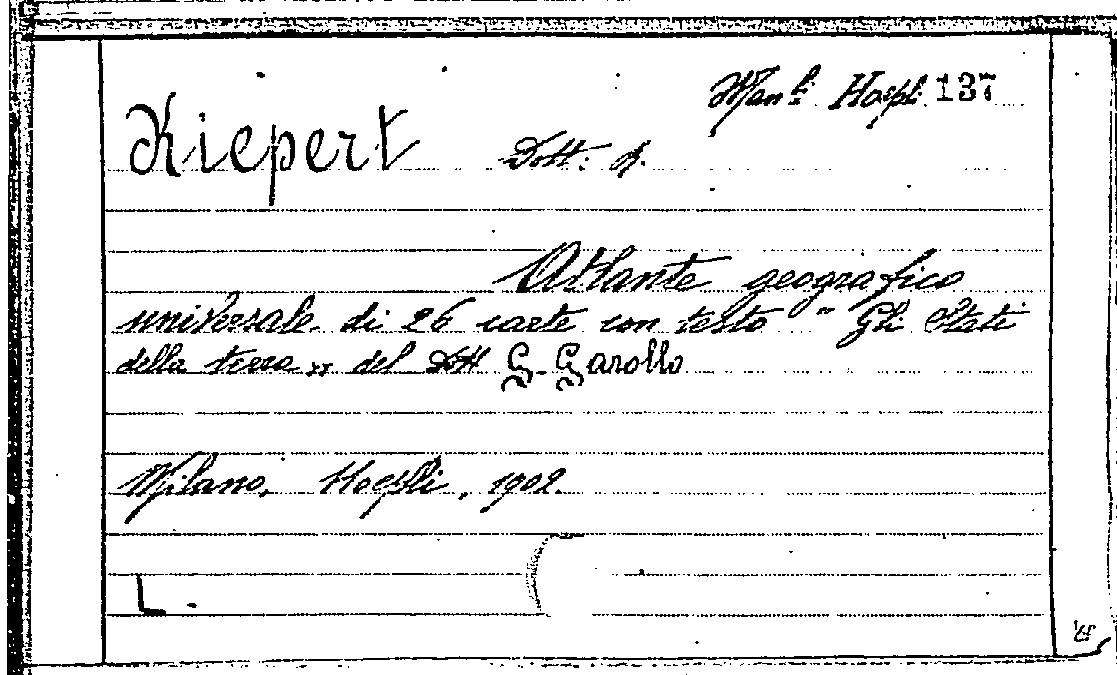 Man.li Hoepli 137
Kiepert Dott: R.
Atlante geografico
universale di 26 carte con testo " Gli Stati
della terra „ del Dott G. Garollo
Milano, Hoepli, 1902.
L.